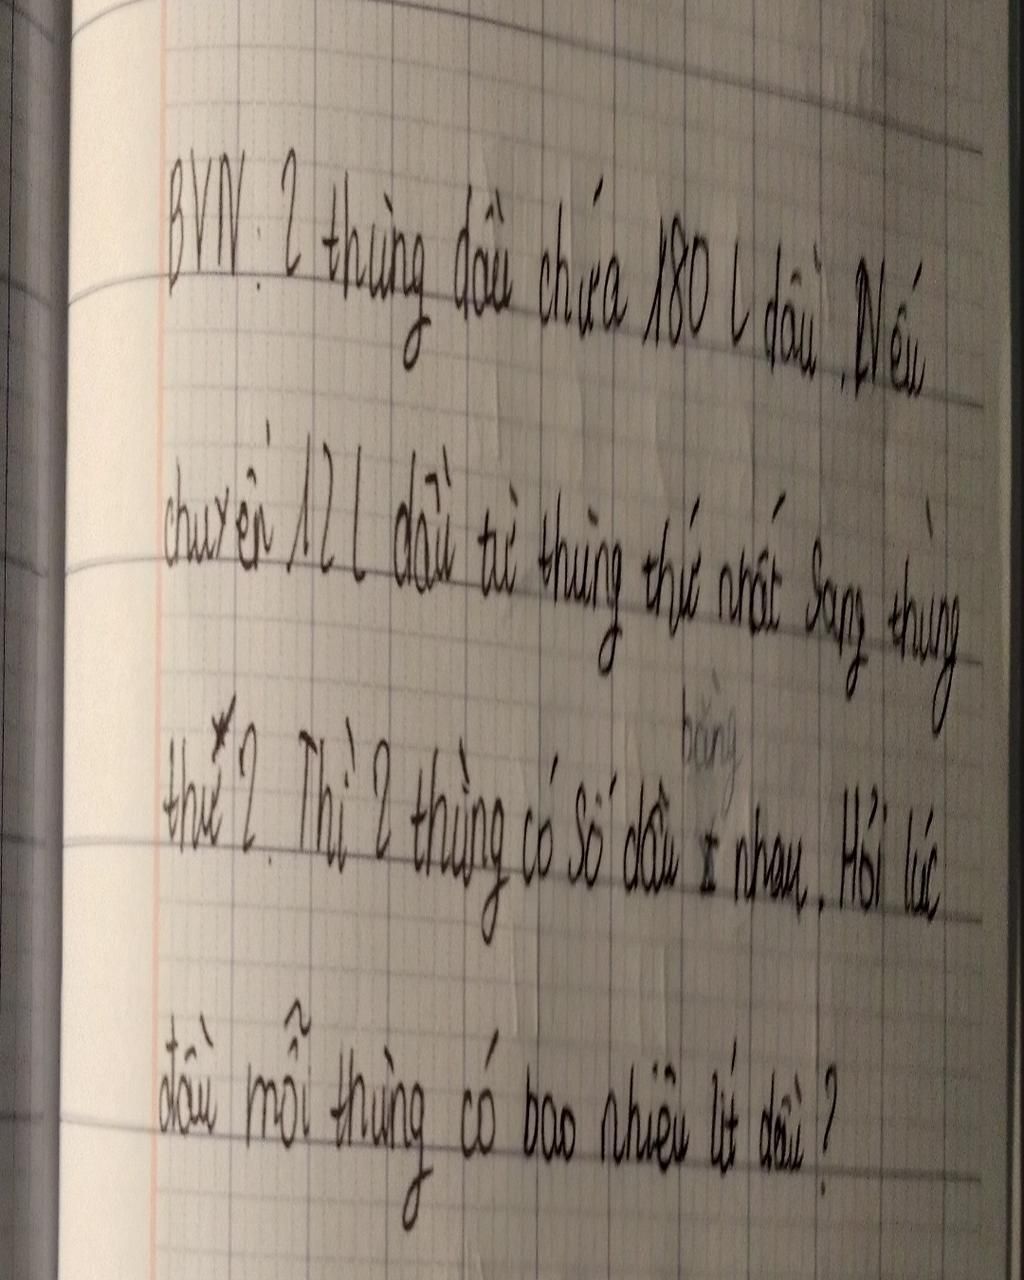 BVN: 2 thùng dầu chứa 180 l dầu. Nếu
chuyển 12 l dầu từ thùng thứ nhất sang thùng
thứ 2. Thì 2 thùng có số dầu bằng nhau. Hỏi lúc
đầu mỗi thùng có bao nhiêu lít dầu?